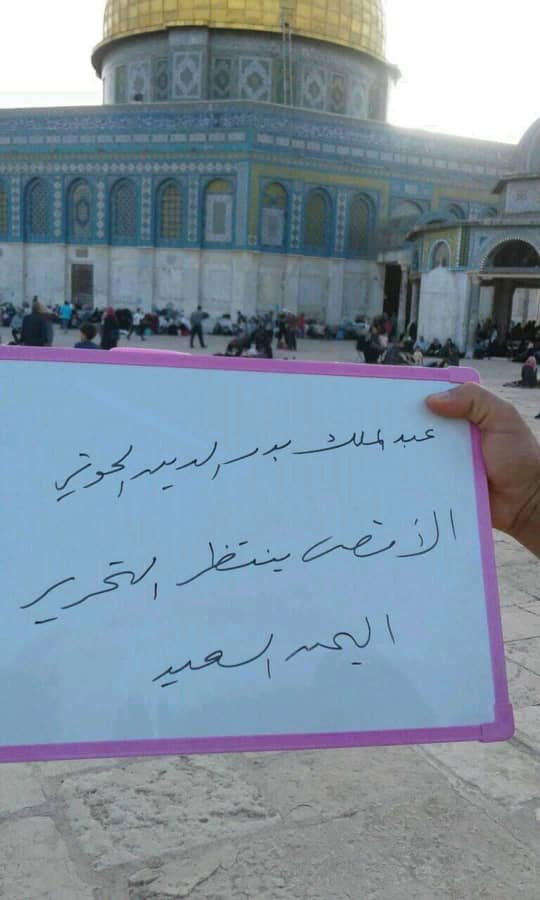 عبد الملك بدر الدين الحوثي
الأقصى ينتظر التحرير
اليمن السعيد